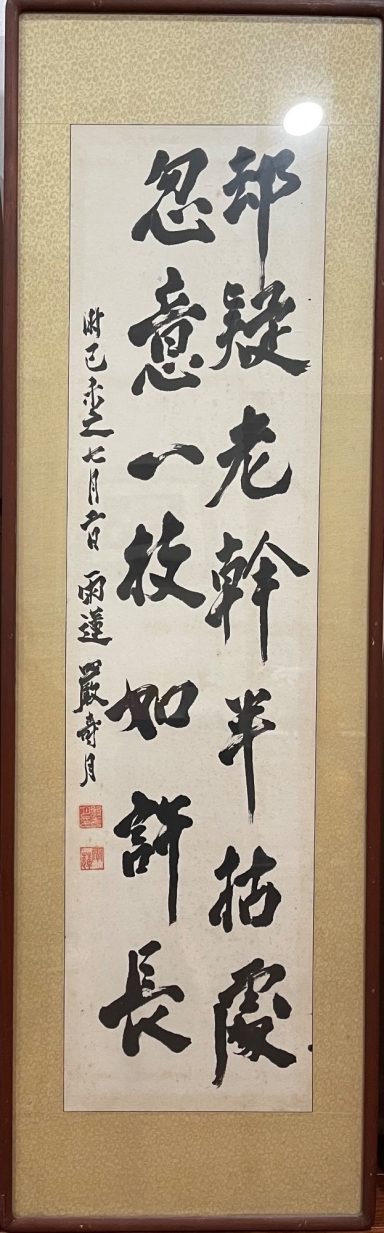 却疑老幹半枯處
忽意一枝如許長
時己未之七月 雨蓮 嚴壽月